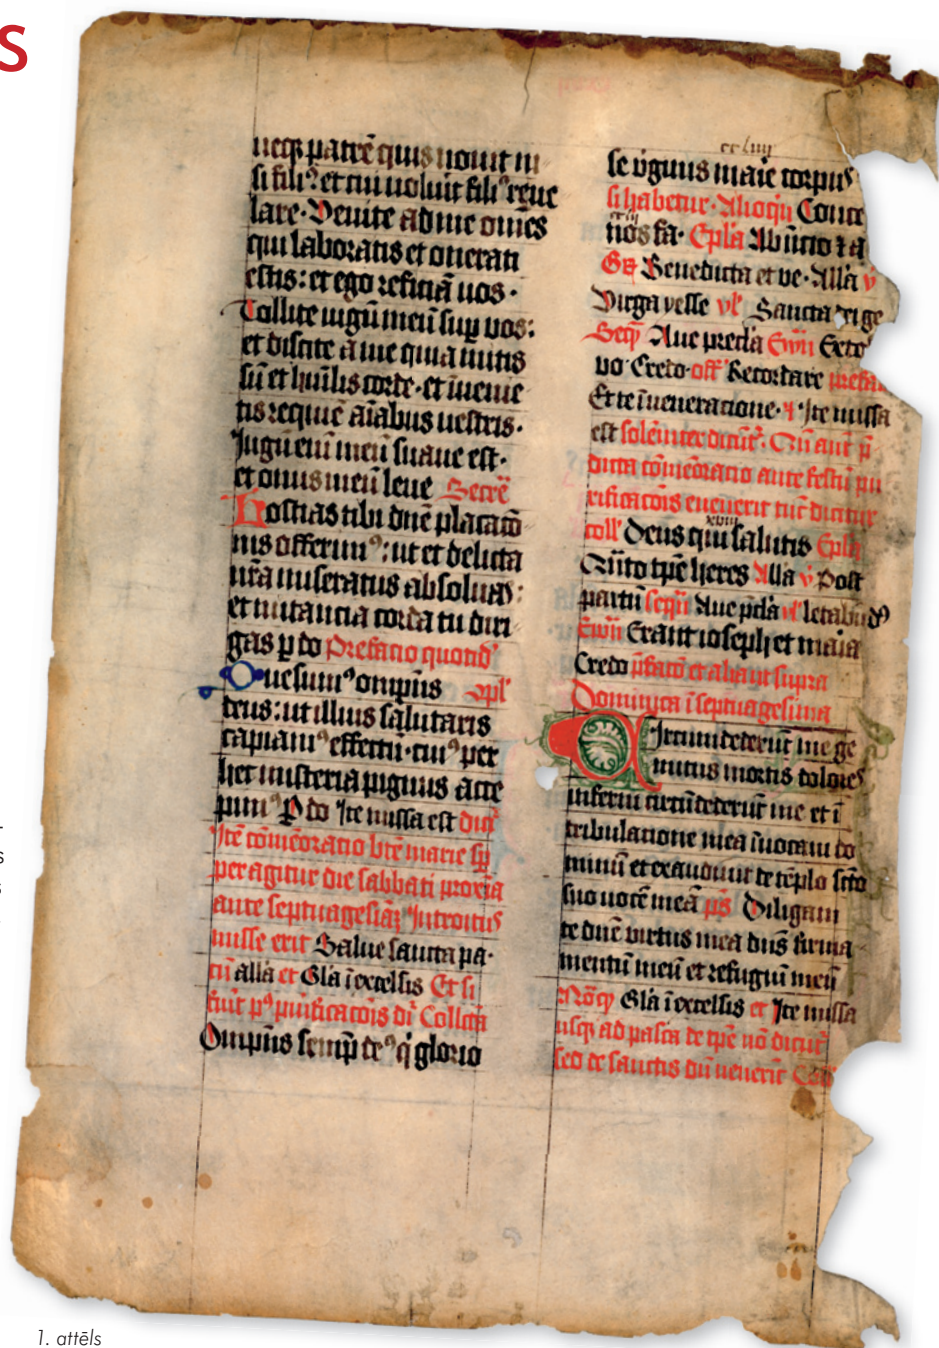 S
neqȝ patrē quis nouit ni
si fili⁹ et cui uoluit fili⁹ reue
lare · Venite ad me om̄es
qui laboratis et onerati
estis : et ego reficiā uos ·
Tollite iugū meū sup uos :
et discite a me quia mitis
sū et hūilis corde · et īuenie
tis requiē aīabus uestris ·
Jugū eni meū suaue est ·
et onus meū leue Secrē
Hostias tibi dn̄e placatō
nis offerim⁹ : ut et delicta
nr̄a miseratus absoluas :
et nutancia corda tu diri
gas p do Prefacio quond̄
Quesum⁹ omp̄ns 9pl̄
deus : ut illius salutaris
capiam⁹ effectū · cui⁹ per
hec misteria pignus acce
pim⁹ P do Ite missa est dr̄
Itē cōmēoratio btē marie sp̄
per agitur die sabbati proxīa
ante septuagesiāȝ Introitus
misse erit Salue sancta pa ·
cū all̄a et Gl̄a ī excelsis Et si
fuit p⁹ puīficatōis dr̄ Collcā
Omp̄ns semp̄ de⁹ q̄ glorio
se v̄gīnis marie corpus
si habetur · Alioqn̄ Conce
nos fa · Epl̄a Ab īnicio ⁊ a
Gr̄ Benedicta et ve · All̄a v̄
Virga yesse vl̄ Sancta dei ge
Seqȝ Aue precl̄a Ewn̄
uo · Credo · off̄ Recordare prefa
Et te ī ueneracione · Ite missa
est solēniter dicit̄ · Cū aut̄ p̄
dicta cōmēoratio ante festū pu
rificatōis euenerit tūc dicitur
coll̄ Deus qui salutis Epl̄a
Cū īto tp̄e heres All̄a v̄ Post
partū seqn̄ Aue pcl̄a vl̄ letabūd⁹
Ewn̄ Erant ioseph et maria
Credo p̄fatō et alia ut supra
Dominica ī septuagesima
Circumdederūt me ge
mitus mortis dolores
inferni circūdederūt me et ī
tribulatione mea īuocaui do
minū et exaudiuit de tēplo scō
suo uocē meā ps̄ Diligam
te dn̄e virtus mea dn̄s firma
mentū meū et refugiū meū
Gl̄a ī excelsis et Ite missa
usqȝ ad pasca de tp̄e nō dicit̄
sed de sanctis dū uenerit Coll̄
1. attēls